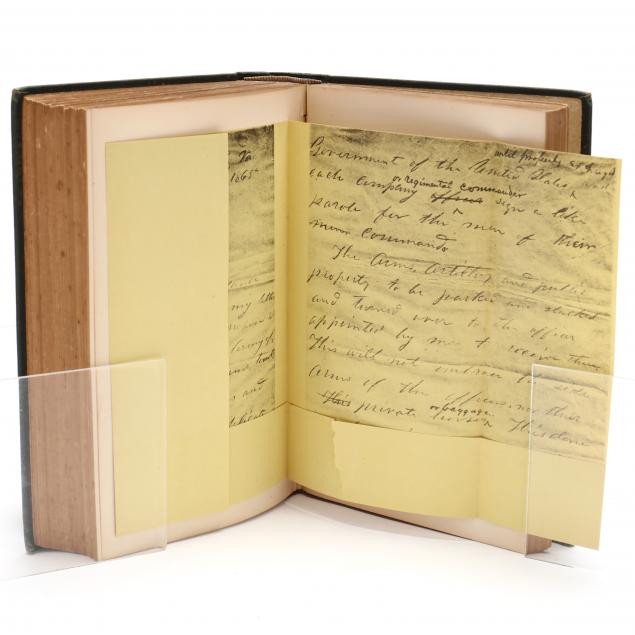 Va
1865
my letter
and
until properly exchanged
Government of the United States and
or regimental commander
each company officer sign a like
parole for the men of their
commands
The Arms, Artillery and public
property to be parked and stacked
and turned over to the officer
appointed by me to receive them
This will not embrace the side
Arms of the officers, nor their
or baggage
This private horses This done